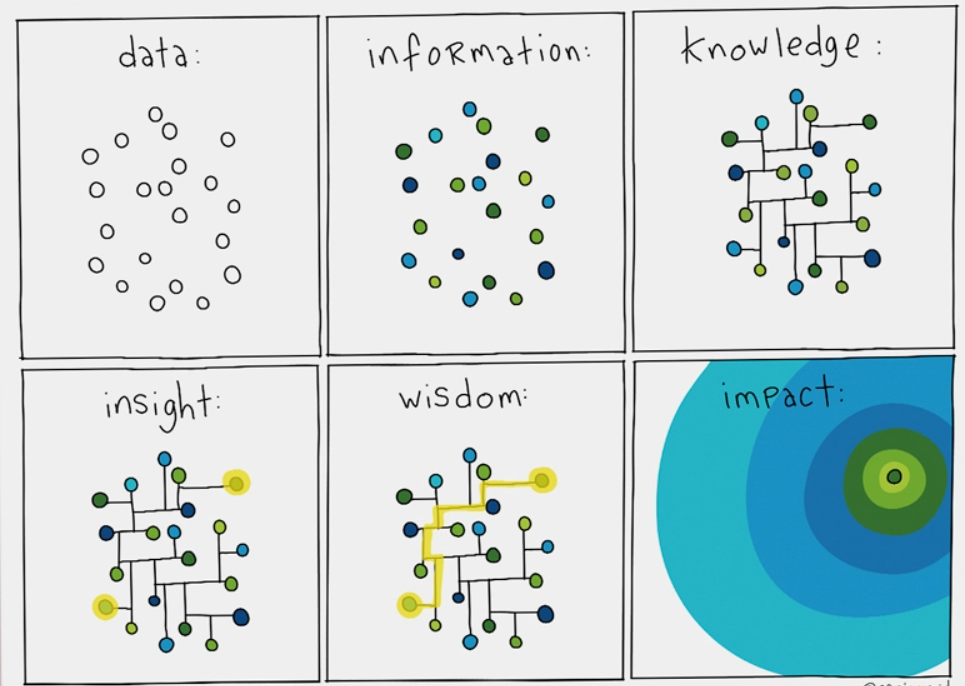 data:
information:
knowledge:
insight:
wisdom:
impact: